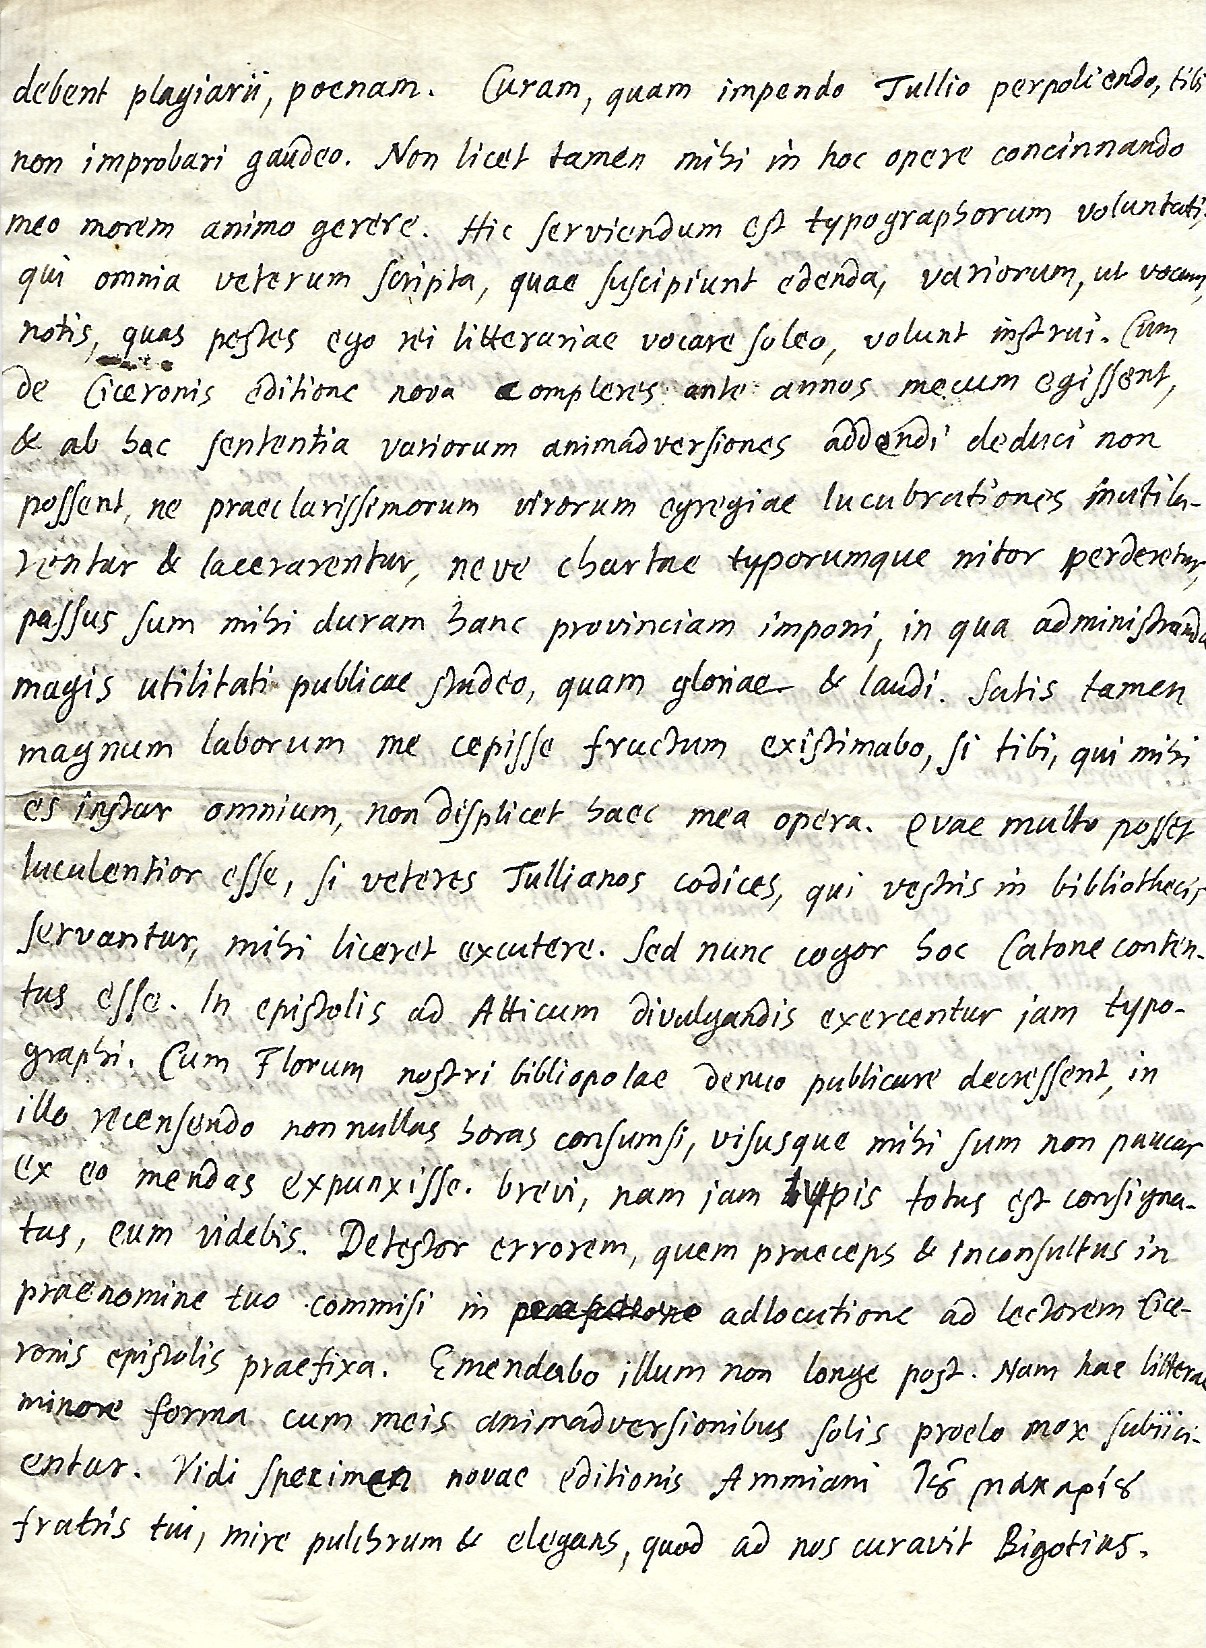 debent plagiarii, poenam. Curam, quam impendo Tullio perpoliendo, tibi
non improbari gaudeo. Non licet tamen mihi in hoc opere concinnando
meo morem animo gerere. Hic serviendum est typographorum voluntati,
qui omnia veterum scripta, quae suscipiunt edenda, variorum, ut vocant,
notis, quas pestes ego rei litterariae vocare soleo, volunt instrui. Cum
de Ciceronis editione nova complures ante annos mecum egissent,
& ab hac sententia variorum animadversiones addendi deduci non
possent, ne praeclarissimorum virorum egregiae lucubrationes mutila-
rentur & lacerarentur, neve chartae typorumque nitor perderetur,
passus sum mihi duram hanc provinciam imponi, in qua administranda
magis utilitati publicae studeo, quam gloriae & laudi. Satis tamen
magnum laborum me cepisse fructum existimabo, si tibi, qui mihi
es instar omnium, non displicet haec mea opera. Quae multo posset
luculentior esse, si veteres Tullianos codices, qui vestris in bibliothecis
servantur, mihi liceret excutere. Sed nunc cogor hoc Catone conten-
tus esse. In epistolis ad Atticum divulgandis exercentur jam typo-
graphi. Cum Florum nostri bibliopolae denuo publicare decressent, in
illo recensendo nonnullas horas consumsi, visusque mihi sum non paucas
ex eo mendas expunxisse. brevi, nam jam typis totus est consigna-
tus, eum videbis. Detestor errorem, quem praeceps & inconsultus in
praenomine tuo commisi in adlocutione ad lectorem Cice-
ronis epistolis praefixa. Emendabo illum non longe post. Nam hae litterae
minore forma cum meis animadversionibus solis proelo mox subiici-
entur. Vidi specimen novae editionis Ammiani τȣ͂ μακαρίȣ
fratris tui, mire pulchrum & elegans, quod ad nos curavit Bigotius.